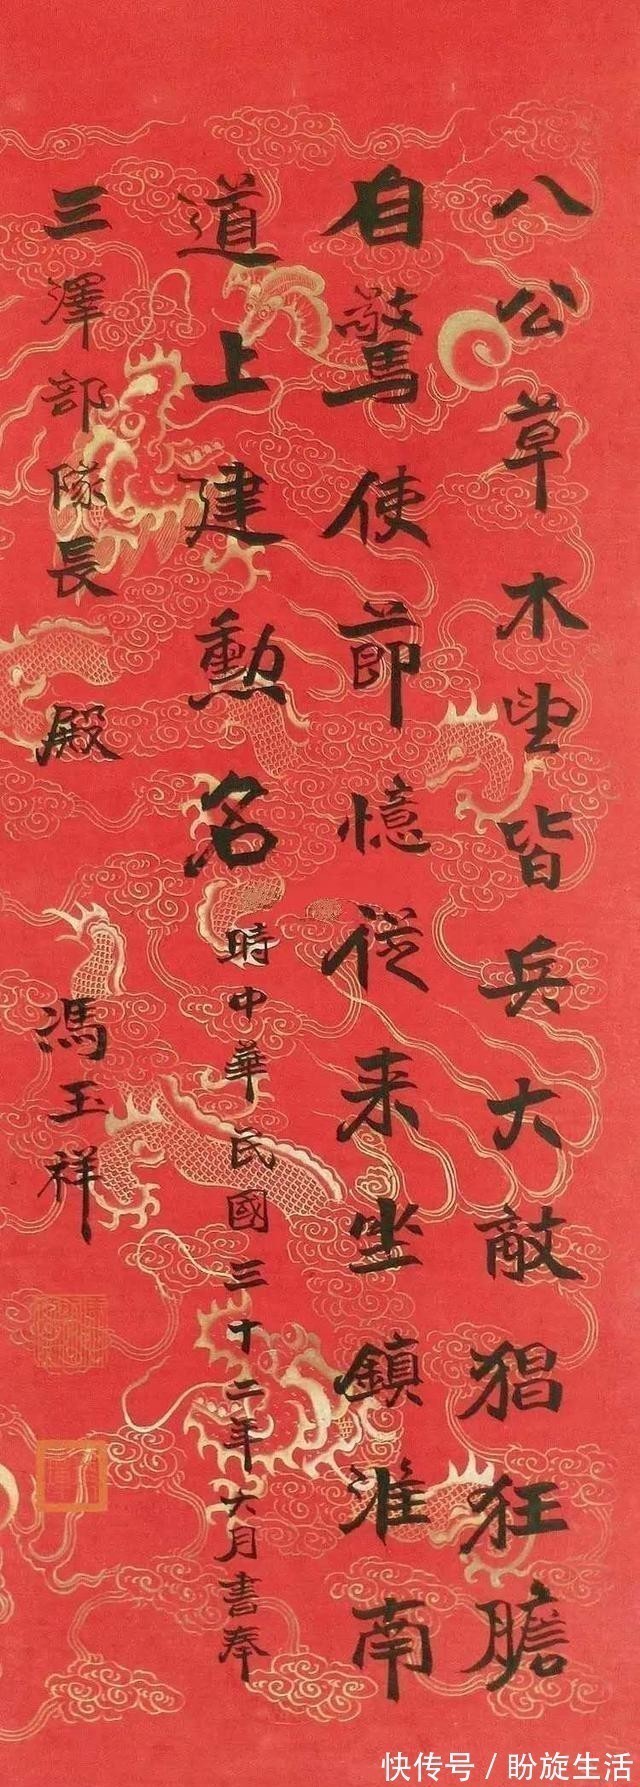 八公草木望皆兵大敵猖狂膽
自驚使節憶從来坐鎮淮南
道上建勳名
時中華民國三十二年六月書奉
三澤部隊長 殿
馮玉祥
快传号 / 盼旋生活